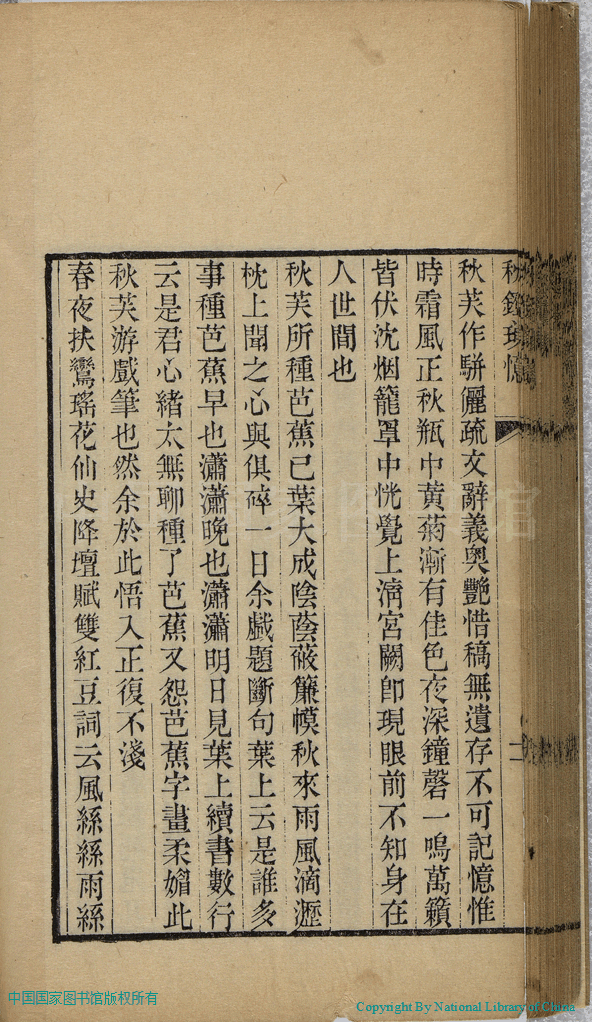 秋鐙瑣憶
秋芙作駢儷疏文辭義奧艷惜稿無遺存不可記憶惟
時霜風正秋瓶中黃菊漸有佳色夜深鐘磬一鳴萬籟
皆伏沈烟籠罩中恍覺上淸宮闕卽現眼前不知身在
人世間也
秋芙所種芭蕉已葉大成陰蔭蔽簾幙秋來雨風滴瀝
枕上聞之心與俱碎一日余戲題斷句葉上云是誰多
事種芭蕉早也瀟瀟晚也瀟瀟明日見葉上續書數行
云是君心緒太無聊種了芭蕉又怨芭蕉字畫柔媚此
秋芙游戲筆也然余於此悟入正復不淺
春夜扶鸞瑤花仙史降壇賦雙紅豆詞云風絲絲雨絲
中国国家图书馆版权所有
Copyright By National Library of China